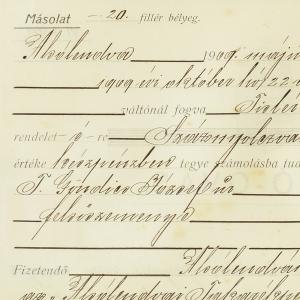 Másolat — 20. fillér bélyeg.
Alsólendva 1909. május
1909 évi október hó 22
váltónál fogva
rendelet – é – re Száznyolcva
értéke készpénzben tegye számolásba tud
T. Göndics József úr
felsőszemenye
Fizetendő Alsólendvá
az „Alsólendvai Takarékp